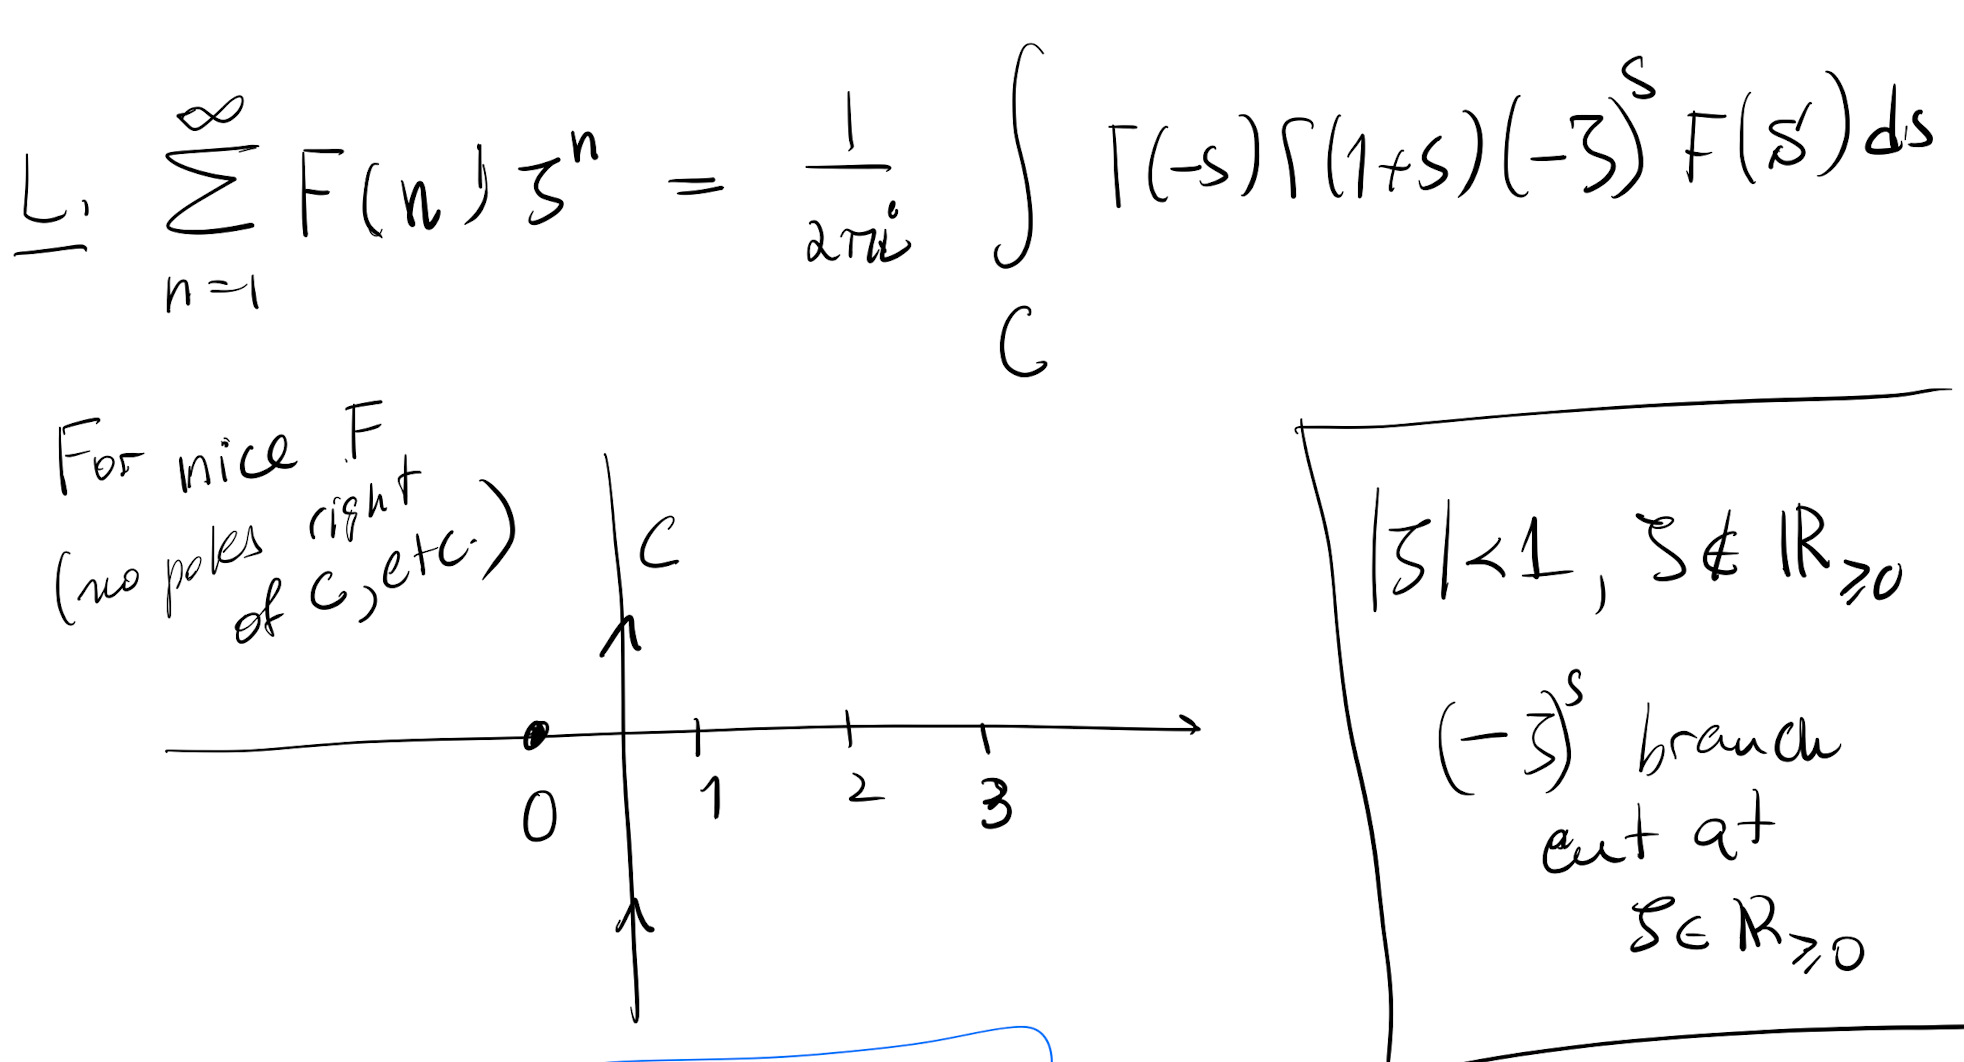 L. ∑_{n=1}^{∞} F(n) ζ^n = 1/(2πi) ∫_C Γ(-s) Γ(1+s) (-ζ)^s F(s) ds
For nice F
(no poles right
of C, etc.)
C
0 1 2 3
|ζ|<1, ζ ∉ ℝ_{≥0}
(-ζ)^s branch
cut at
ζ ∈ ℝ_{≥0}